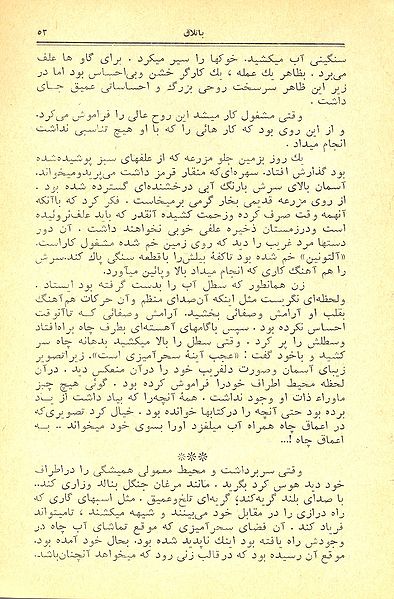 باتلاق ۵۳
سنگینی آب میکشید. خوکها را سیر میکرد . برای گاو ها علف
می‌برد . بظاهر یك عمله ، یك کارگر خشن وبی‌احساس بود اما در
زیر این ظاهر سرسخت روحی بزرگ و احساساتی عمیق جای
داشت .
وقتی مشغول کار میشد این روح عالی را فراموش می‌کرد.
و از این روی بود که کار هائی را که با او هیچ تناسبی نداشت
انجام میداد .
یك روز بزمین جلو مزرعه که از علفهای سبز پوشیده‌شده
بود گذارش افتاد. سهره‌ای‌که منقار قرمز داشت می‌پریدومیخواند.
آسمان بالای سرش بارنگ آبی درخشنده‌ای گسترده شده بود .
از روی مزرعه قدیمی بخار گرمی برمیخاست . فکر کرد که باآنکه
آنهمه وقت صرف کرده وزحمت کشیده آنقدر که باید علف‌نروئیده
است ودرزمستان ذخیره علفی خوبی نخواهند داشت . آن دور
دستها مرد غریب را دید که روی زمین خم شده مشغول کاراست.
«آلتونین» خم شده بود تاکفهٔ بیلش‌را باقطعه سنگی پاك کند.سرش
را هم آهنگ کاری که انجام میداد بالا وپائین میآورد.
زن همانطور که سطل آب را بدست گرفته بود ایستاد .
ولحظه‌ای نگریست مثل اینکه آن‌صدای منظم وآن حرکات هم‌آهنگ
بقلب او آرامش وصفائی بخشید. آرامش وصفائی که تاآنوقت
احساس نکرده بود . سپس باگامهای آهسته‌ای بطرف چاه براه‌افتاد
وسطلش را پر کرد . وقتی سطل را بالا میکشید بدهانه چاه سر
کشید و باخود گفت : «عجب آینهٔ سحرآمیزی است». زیراتصویر
زیبای آسمان وصورت دلفریب خود را درآن منعکس دید . درآن
لحظه محیط اطراف خودرا فراموش کرده بود . گوئی هیچ چیز
ماوراء ذات او وجود نداشت . همهٔ آنچه‌را که بیاد داشت از یاد
برده بود حتی آنچه را درکتابها خوانده بود . خیال کرد تصویری‌که
در اعماق چاه همراه آب میلغزد اورا بسوی خود میخواند .. به
اعماق چاه !...
***
وقتی سربرداشت و محیط معمولی همیشگی را دراطراف
خود دید هوس کرد بگرید . مانند مرغان جنگل بناله وزاری کند..
با صدای بلند گریه‌کند؛ گریه‌ای تلخ‌وعمیق . مثل اسبهای کاری که
راه درازی را در مقابل خود می‌بینند و شیهه میکشند ، تامیتواند
فریاد کند . آن فضای سحرآمیزی که موقع تماشای آب چاه در
وجودش راه یافته بود اینك ناپدید شده بود. بحال خود آمده بود.
موقع آن رسیده بود که درقالب زنی رود که میخواهد آنچنان‌باشد.